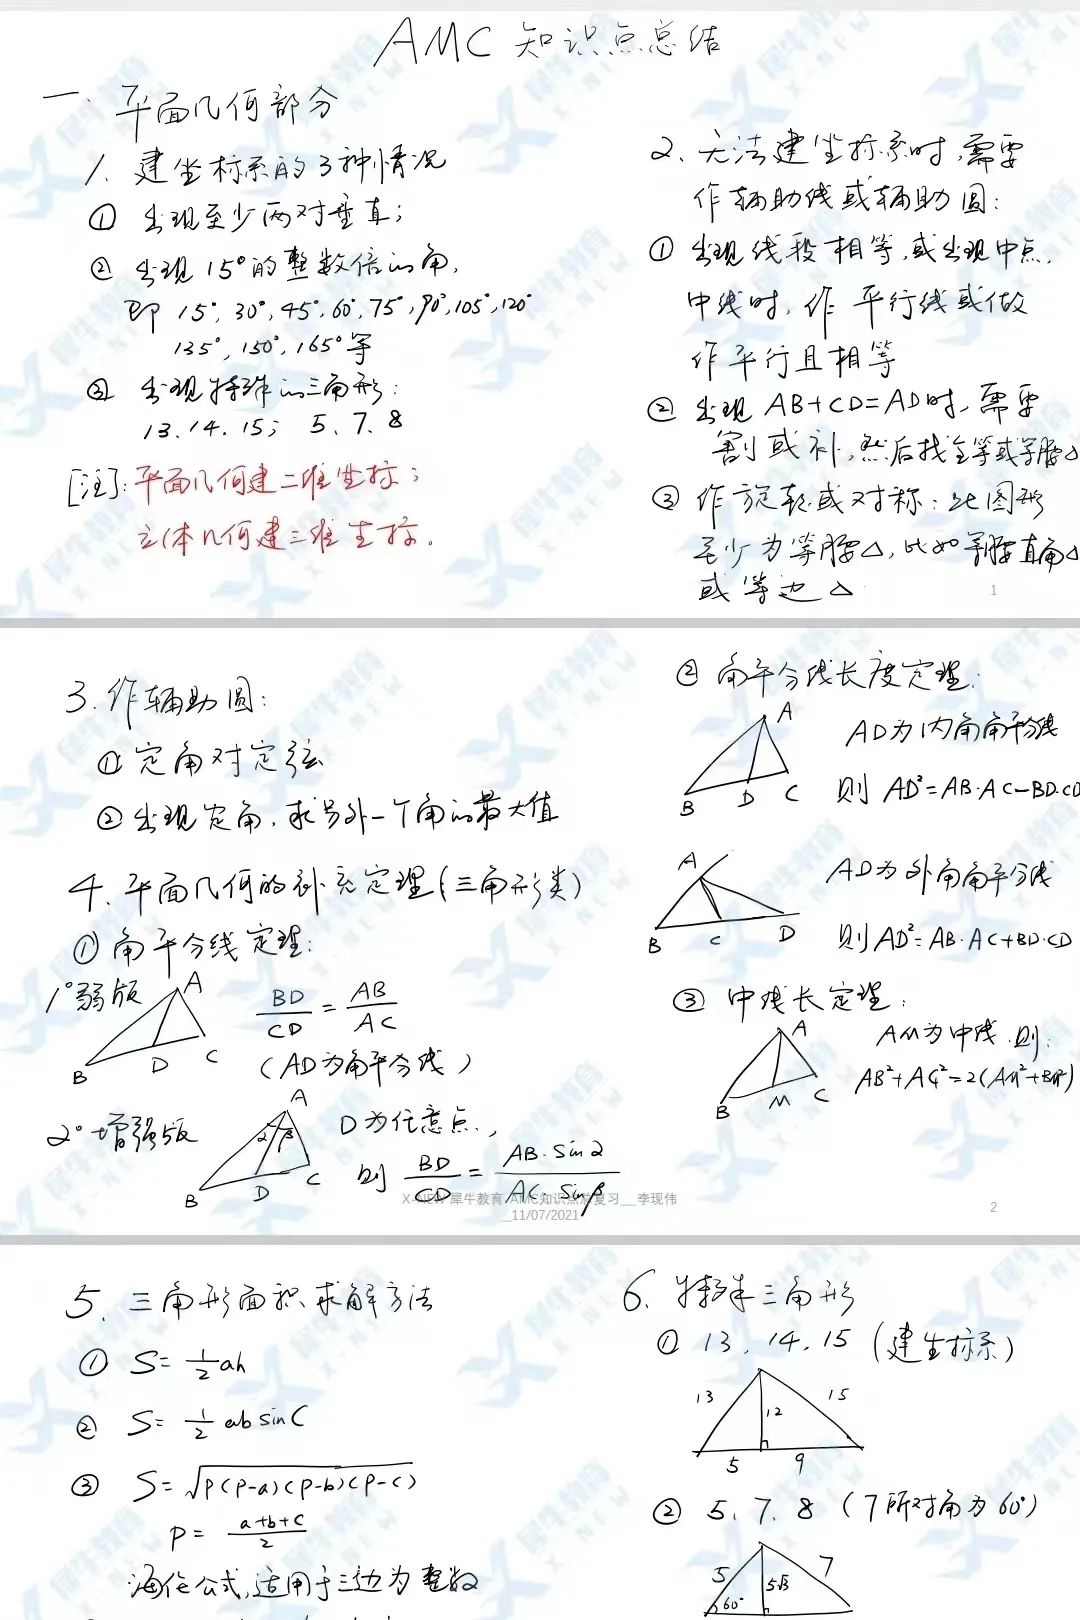 AMC 知识点总结
一、平面几何部分
1、建坐标系的3种情况
① 出现至少两对垂直;
② 出现15°的整数倍的角,
即 15°, 30°, 45°, 60°, 75°, 90°, 105°, 120°
135°, 150°, 165°等
③ 出现特殊的三角形:
13. 14. 15; 5、7、8
[注]: 平面几何建二维坐标;
立体几何建三维坐标。
2、无法建坐标系时,需要
作辅助线或辅助圆:
① 出现线段相等,或出现中点,
中线时,作平行线或做
作平行且相等
② 出现 AB+CD=AD时,需要
割或补,然后找全等或等腰△
③ 作旋转或对称:此图形
至少为等腰△,比如等腰直角△
或等边△
1
3. 作辅助圆:
① 定角对定弦
② 出现定角,求另外一个角的最大值
4、平面几何的补充定理(三角形类)
① 角平分线定理:
1° 弱版
A
B
D
C
BD/CD = AB/AC
(AD为角平分线)
2° 增强版
A
α β
B
D
C
D为任意点,
则 BD/CD = AB·sinα/AC·sinβ
② 角平分线长度定理:
A
B
D
C
AD为内角角平分线
则 AD²=AB·AC-BD·CD
A
B
C
D
AD为外角角平分线
则 AD²=AB·AC+BD·CD
③ 中线长定理:
A
B
M
C
AM为中线,则:
AB²+AC²=2(AM²+BM²)
X-NEW 犀牛教育 AMC知识点总复习__李现伟
__11/07/2021
2
5、三角形面积求解方法
① S= 1/2 ah
② S= 1/2 ab sinC
③ S=√p(p-a)(p-b)(p-c)
p= a+b+c/2
海伦公式,适用于三边为整数
6、特殊三角形
① 13, 14, 15 (建坐标系)
13
12
15
5
9
② 5、7、8 (7所对角为60°)
5
5√3
7
60°